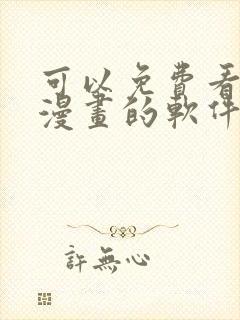 可以免費看
漫畫的軟件
許無心